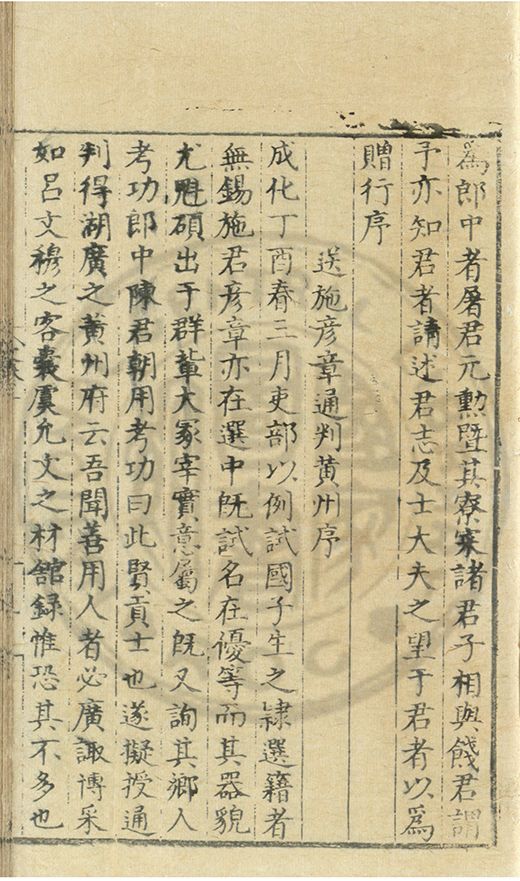 為郎中者屠君元勳暨其寮寀諸君子相與餞君謂
予亦知君者請述君志及士大夫之望于君者以為
贈行序
送施彦章通判黄州序
成化丁酉春三月吏部以例試國子生之隷選籍者
無錫施君彦章亦在選中旣試名在優等而其器貌
尤魁碩出于群輩大冢宰實意屬之旣又詢其郷人
考功郎中陳君朝用考功曰此賢貢士也遂擬授通
判得湖廣之黄州府云吾聞善用人者必廣諏博采
如呂文穆之客囊虞允文之材舘録惟恐其不多也